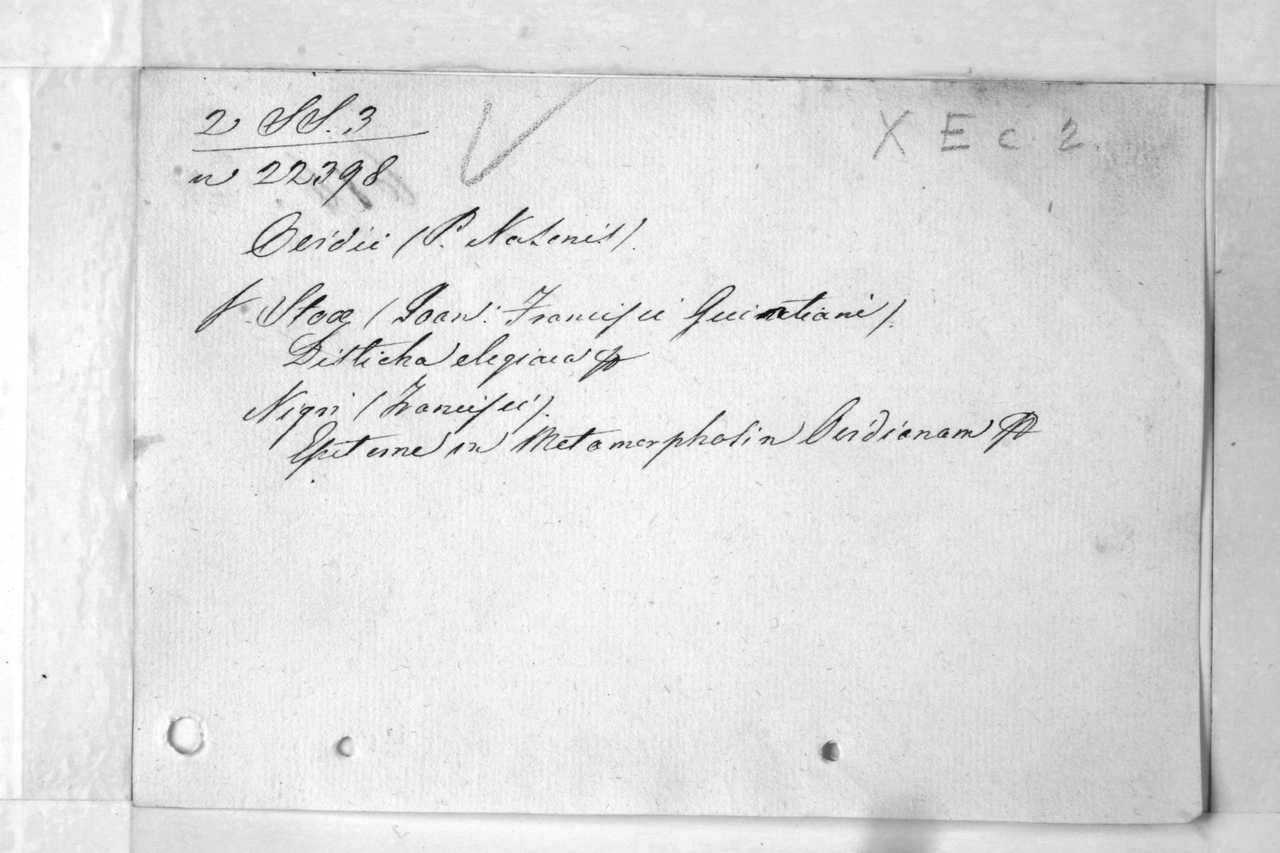 2 SS. 3
X E c 2.
n 22398
Ovidii (P. Nasonis).
f. Stoæ (Joan: Francisci Quintiani).
Disticha elegiaca
Nigri (Francisci).
Epitome in Metamorphosin Ovidianam